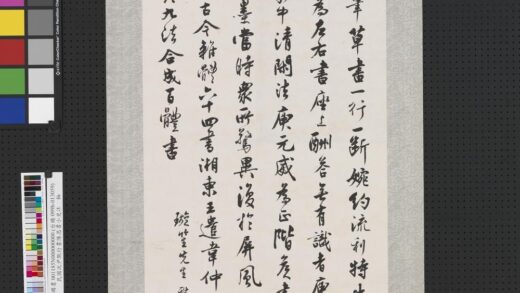 筆草書一行一斷婉約流利特
為左右書座上酬答無有識者便
中清閒法庾元威為正階侯書
墨當時衆所驚異復於屏風
古今雜體六十四書湘東王遣韋仲
九法合成百體書
璇笙先生